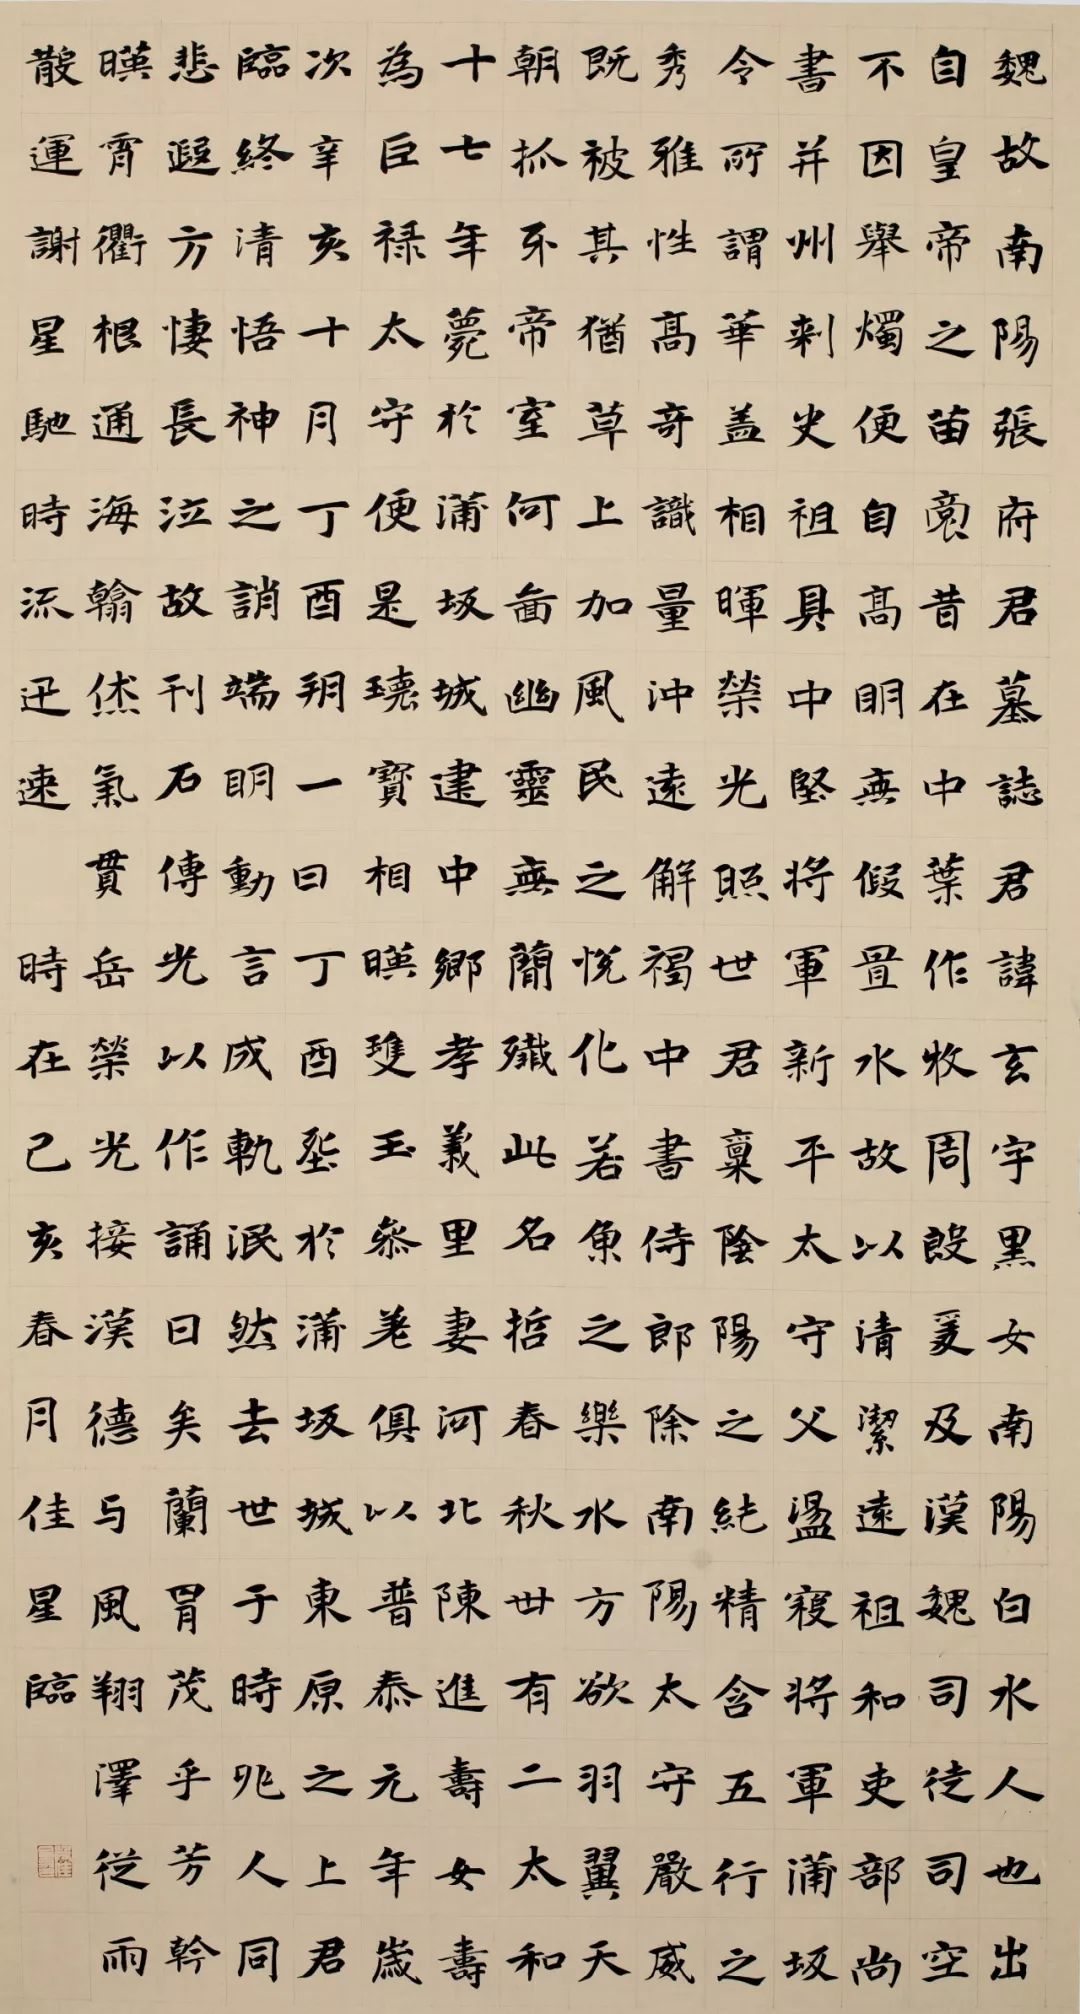 魏故南陽張府君墓誌君諱玄字黑女南陽白水人也出
自皇帝之苗裔昔在中葉作牧周殷爰及漢魏司徒司空
不因舉燭便自高明無假置水故以清潔遠祖和吏部尚
書并州刾史祖具中堅將軍新平太守父盪寇將軍蒲坂
令所謂華盖相暉榮光照世君稟陰陽之純精含五行之
秀雅性高奇識量沖遠解褐中書侍郎除南陽太守嚴威
既被其猶草上加風民之悅化若魚之樂水方欲羽翼天
朝抓牙帝室何啚幽靈無簡殲此名哲春秋卅有二太和
十七年薨於蒲坂城建中鄉孝義里妻河北陳進壽女壽
為巨祿太守便是瓌寶相暎雙玉參差俱以普泰元年歲
次辛亥十月丁酉朔一日丁酉葬於蒲坂城東原之上君
臨終清悟神之誚端明動言成軌泯然去世于時兆人同
悲遐方悽長泣故刊石傳光以作誦曰矣蘭冑茂乎芳幹
暎霄衢根通海翰倐氣貫岳榮光接漢德与風翔澤從雨
散運謝星馳時流迅速 時在己亥春月佳星臨